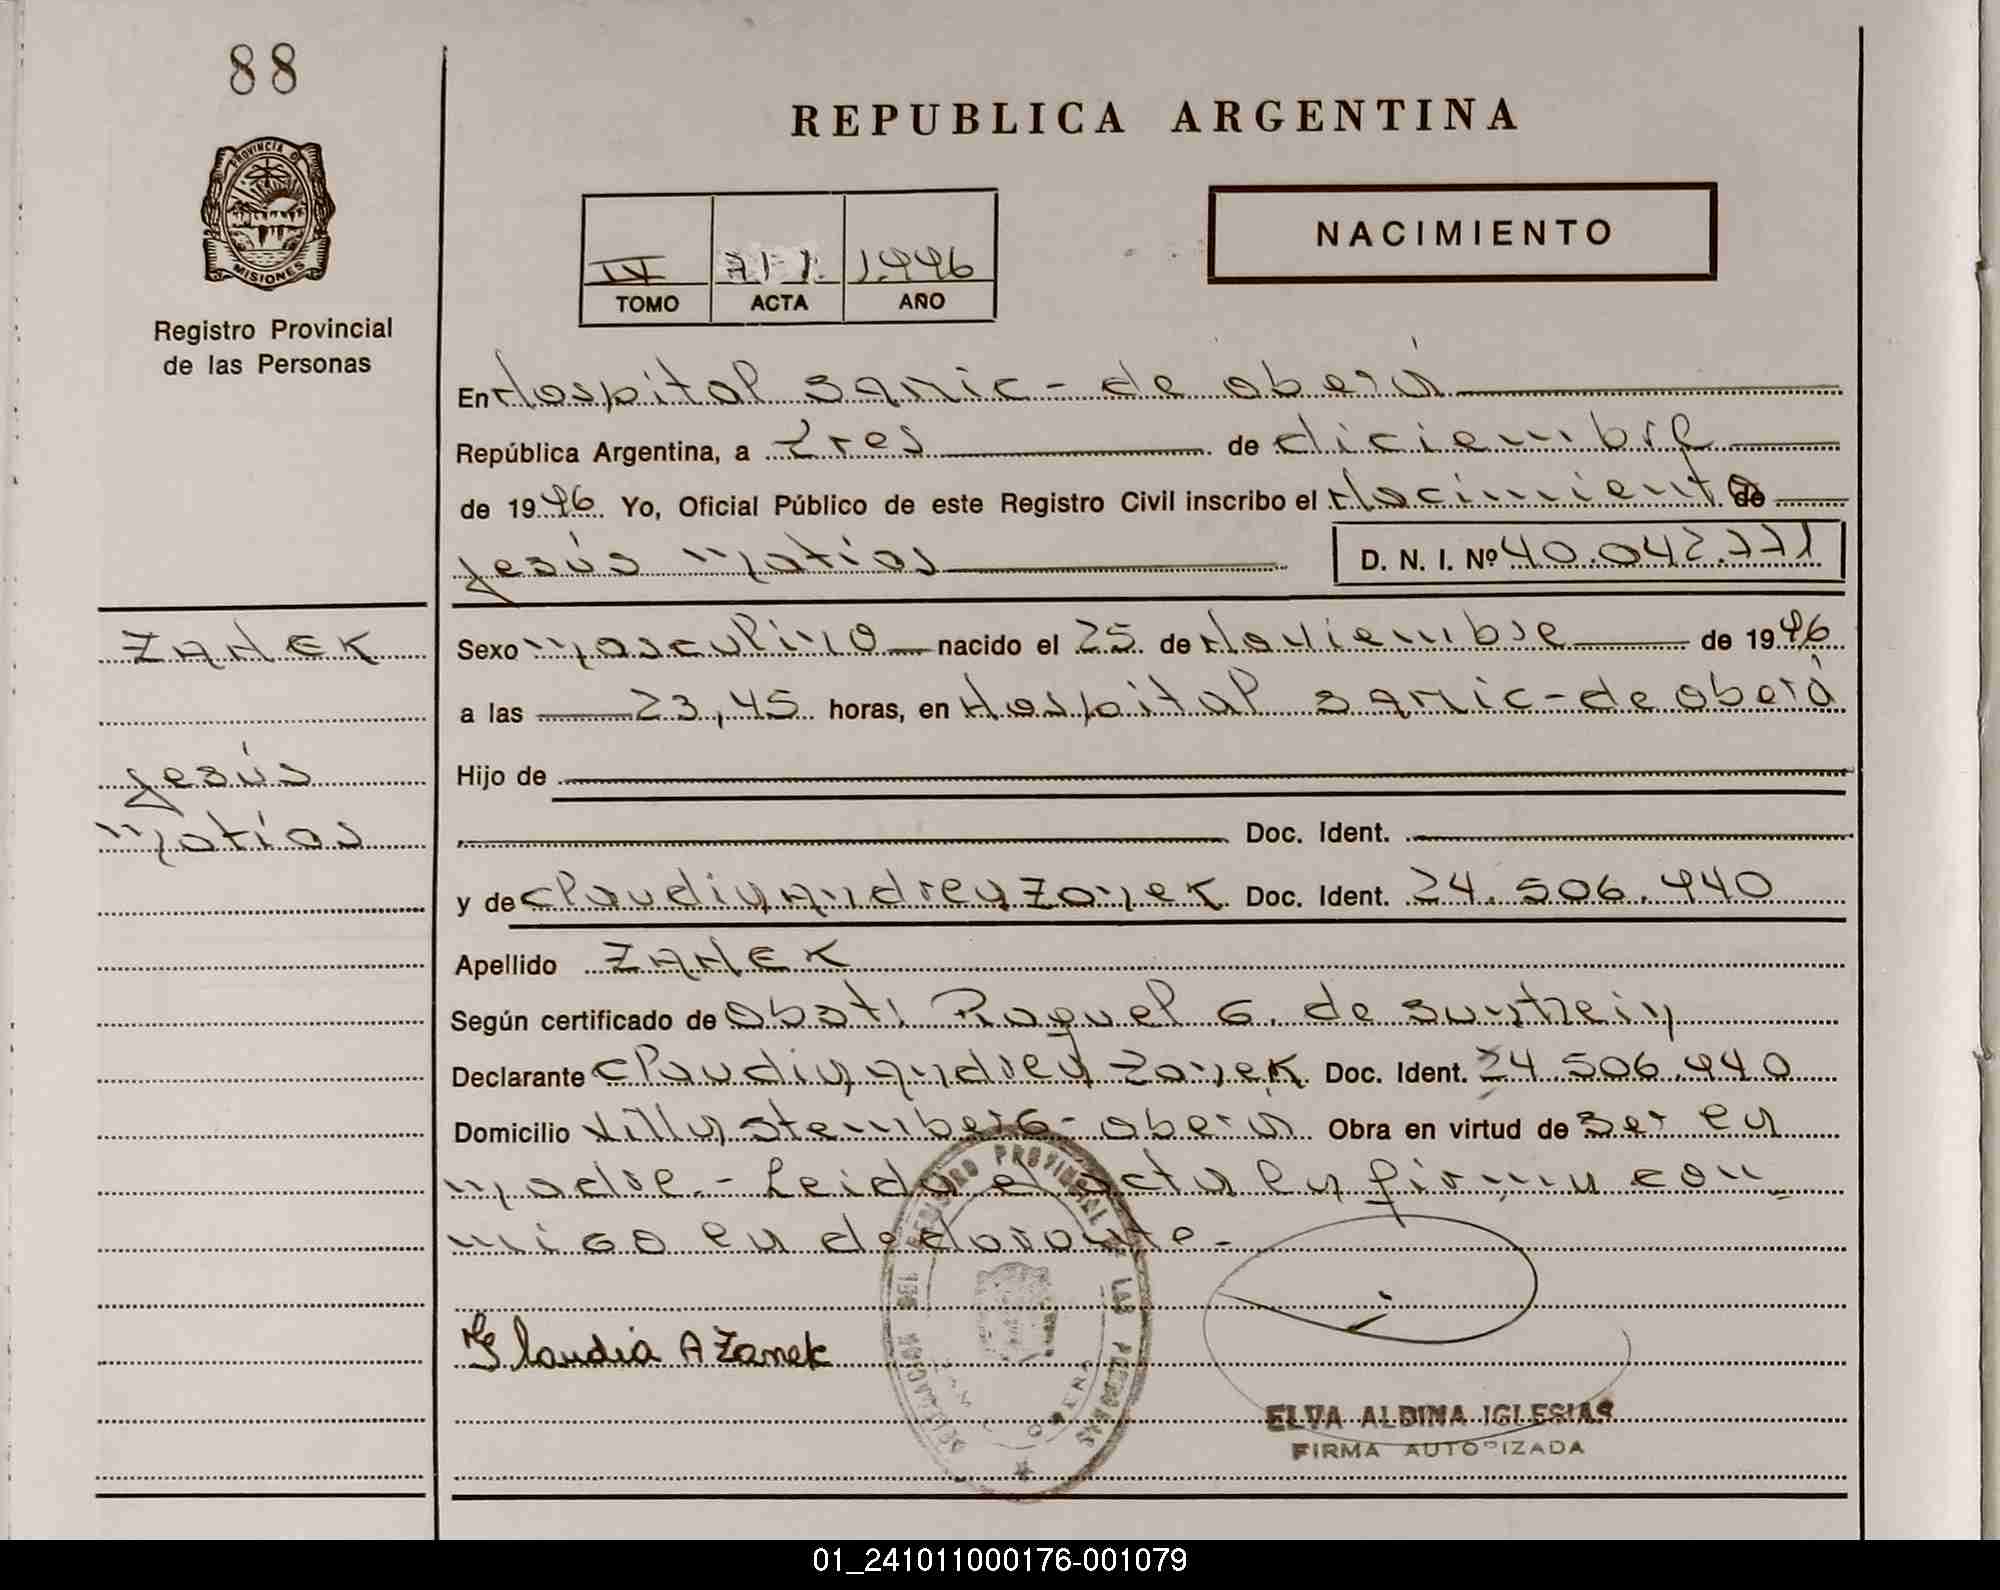 88
REPUBLICA ARGENTINA
PROVINCIA DE
MISIONES
Registro Provincial
de las Personas
NACIMIENTO
IV 1996
TOMO ACTA AÑO
En Hospital Samic - de oberá
República Argentina, a tres de diciembre
de 1996 Yo, Oficial Público de este Registro Civil inscribo el Nacimiento de
Jesús Matías D. N. I. Nº 40.042.771
ZANEK
Sexo Masculino nacido el 25 de Noviembre de 1996
a las 23,45 horas, en Hospital Samic - de oberá
Jesús
Hijo de
Matías
Doc. Ident.
y de Claudia Andrea Zanek Doc. Ident. 24.506.940
Apellido ZANEK
Según certificado de obst. Raquel G. de
Declarante Claudia Andrea Zanek Doc. Ident. 24.506.940
Domicilio Villa Stemberg - oberá Obra en virtud de ser la
madre.- Leida el acta la firma con_
migo la declarante.-
REGISTRO PROVINCIAL DE LAS PERSONAS
Claudia A Zanek
OBERA
ELVA ALDINA IGLESIAS
FIRMA AUTORIZADA
01_241011000176-001079